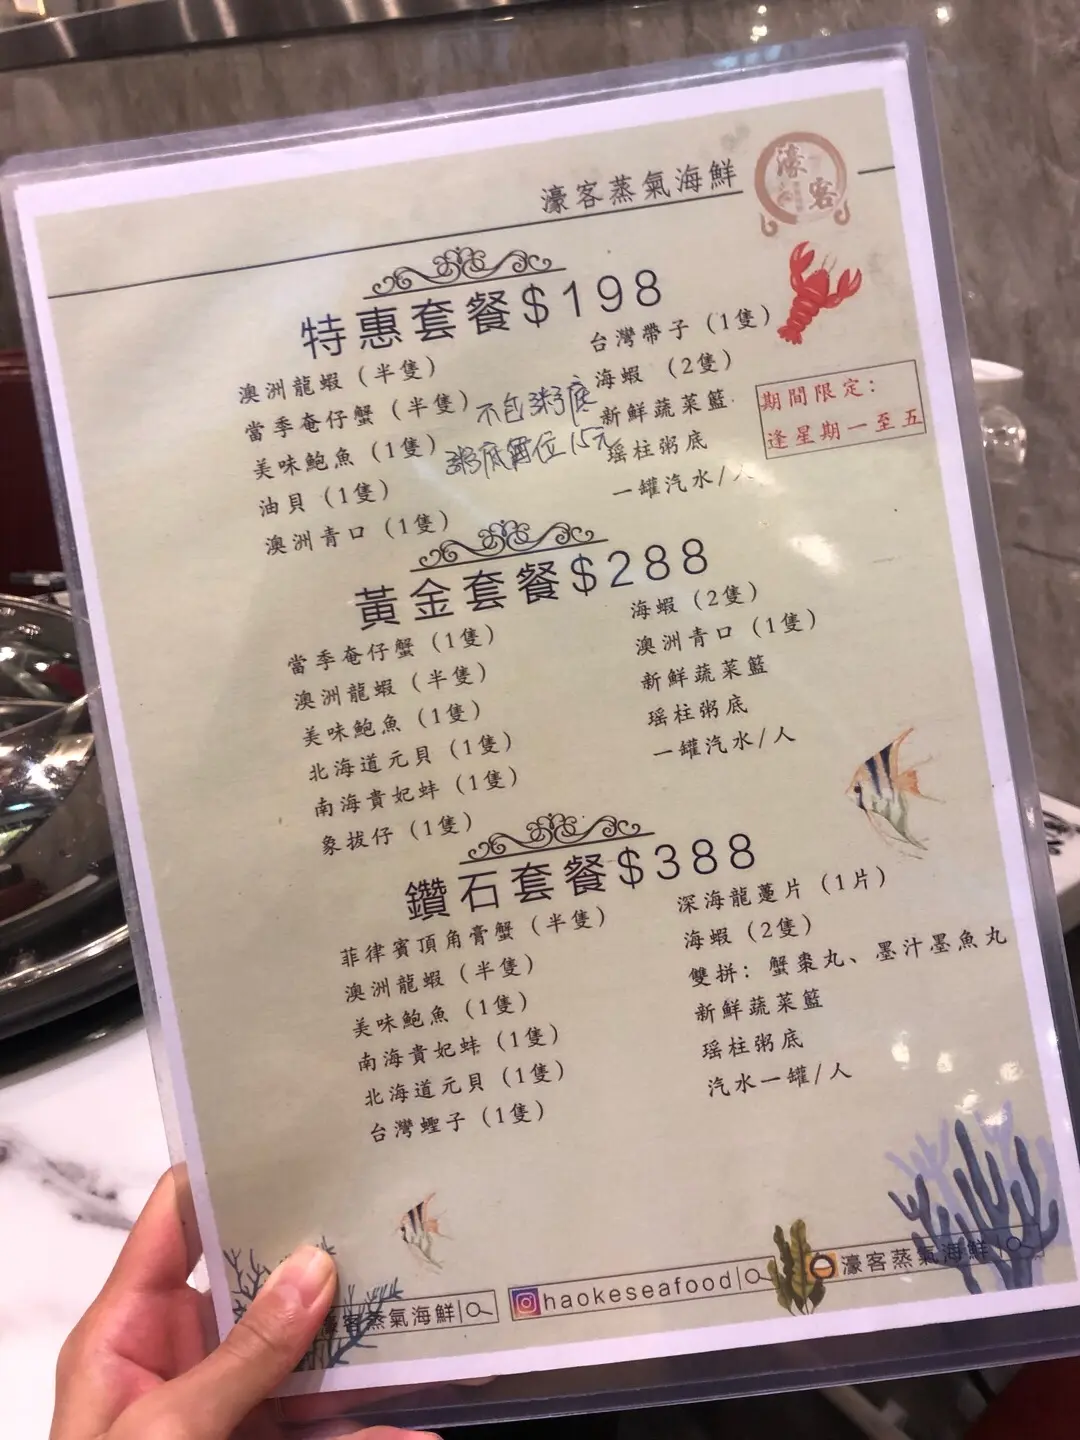 濠客蒸氣海鮮
濠客
特惠套餐$198
澳洲龍蝦（半隻）
當季奄仔蟹（半隻）
美味鮑魚（1隻）
油貝（1隻）
澳洲青口（1隻）
不包粥底
粥底每位15元
台灣帶子（1隻）
海蝦（2隻）
新鮮蔬菜籃
瑶柱粥底
一罐汽水/人
期間限定：
逢星期一至五
黃金套餐$288
當季奄仔蟹（1隻）
澳洲龍蝦（半隻）
美味鮑魚（1隻）
北海道元貝（1隻）
南海貴妃蚌（1隻）
象拔仔（1隻）
海蝦（2隻）
澳洲青口（1隻）
新鮮蔬菜籃
瑶柱粥底
一罐汽水/人
鑽石套餐$388
菲律賓頂角膏蟹（半隻）
澳洲龍蝦（半隻）
美味鮑魚（1隻）
南海貴妃蚌（1隻）
北海道元貝（1隻）
台灣蟶子（1隻）
深海龍躉片（1片）
海蝦（2隻）
雙拼：蟹棗丸、墨汁墨魚丸
新鮮蔬菜籃
瑶柱粥底
汽水一罐/人
濠客蒸氣海鮮
haokeseafood
濠客蒸氣海鮮